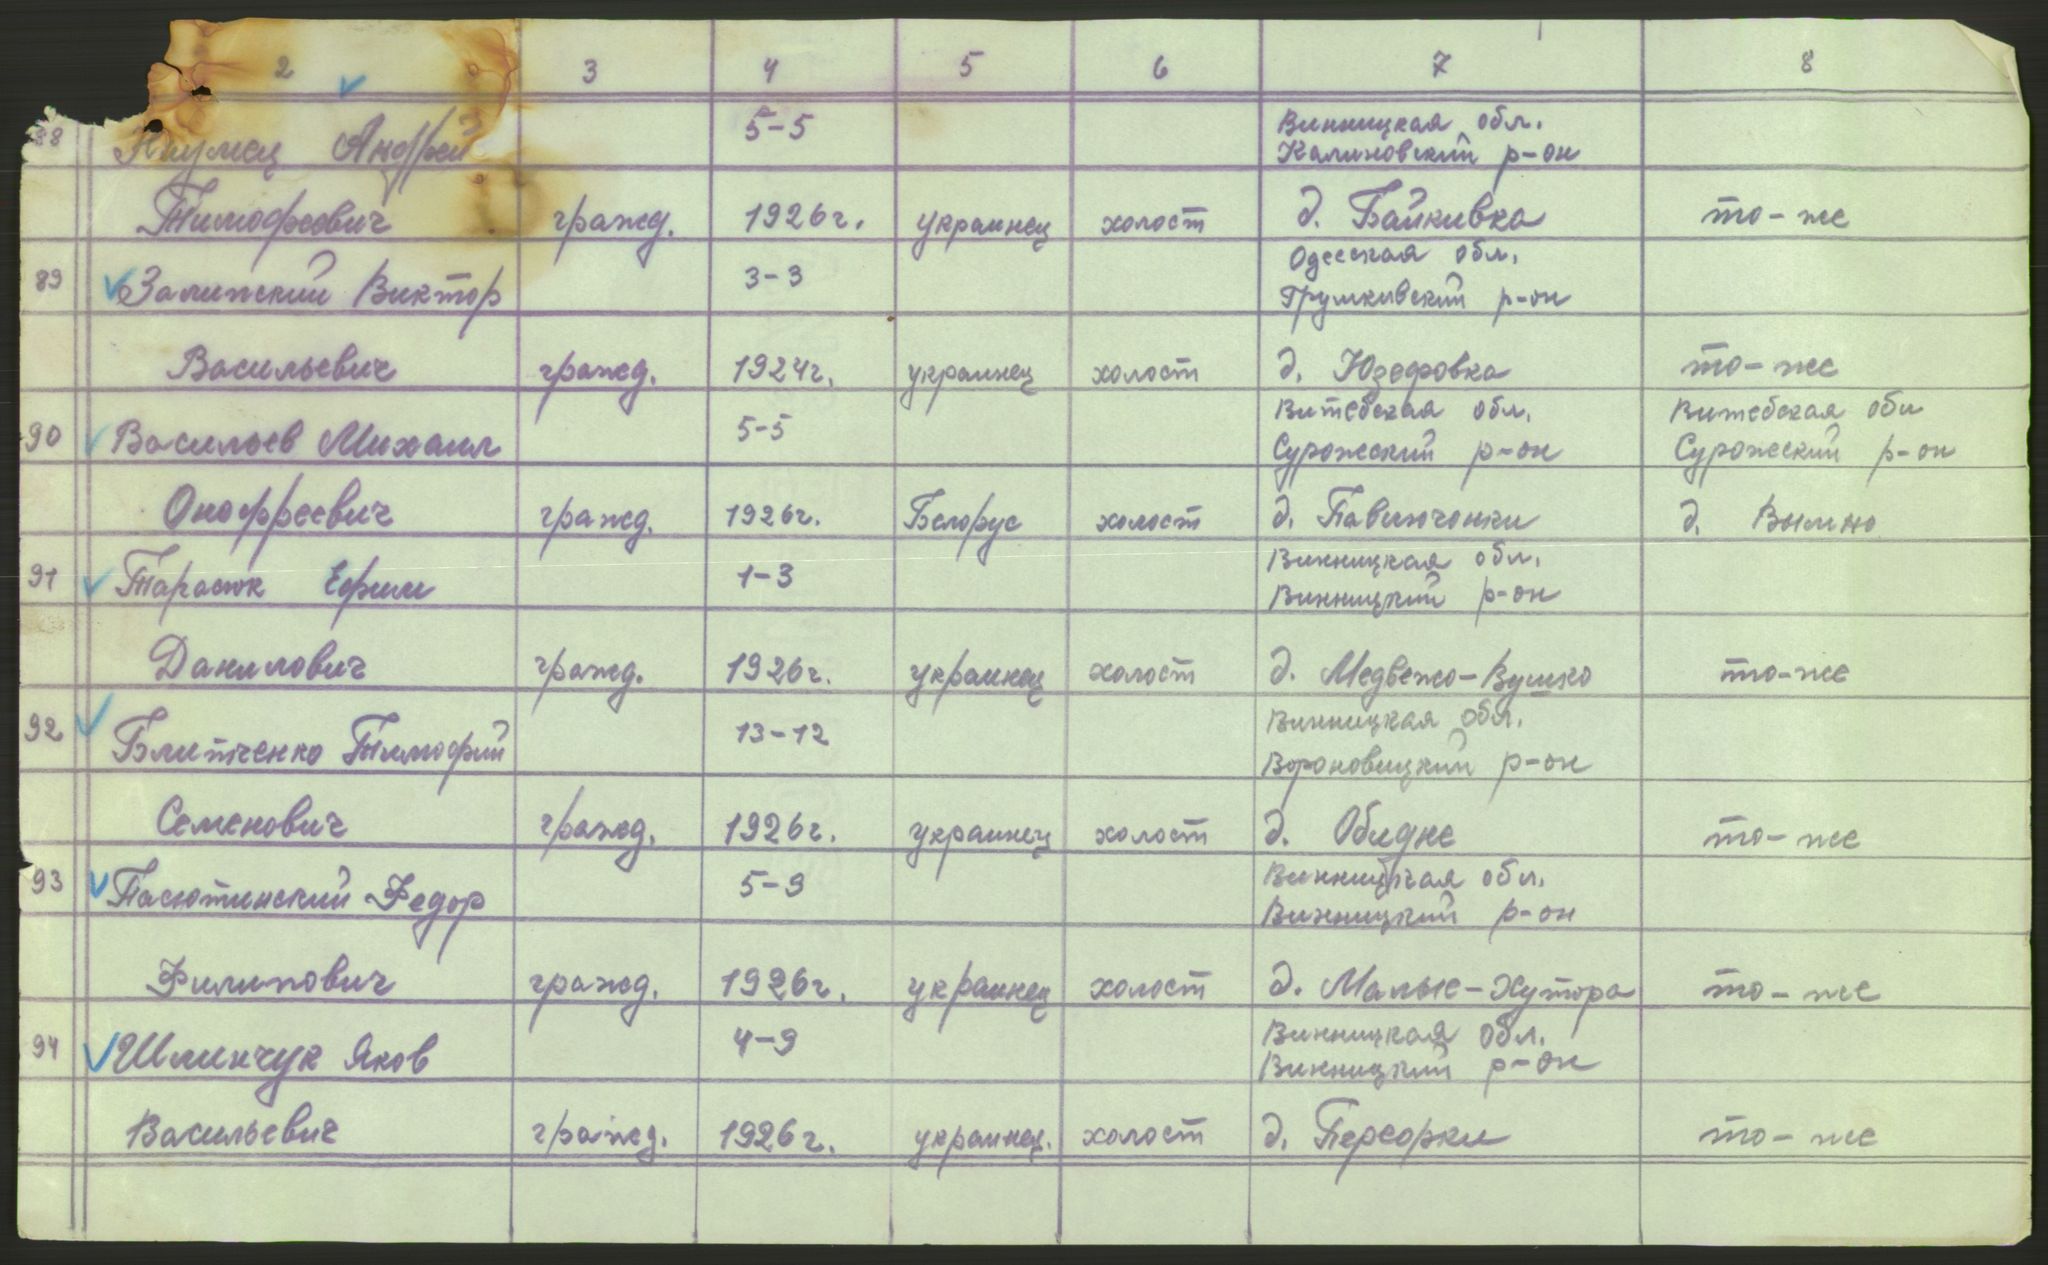 2 3 4 5 6 7 8
88 Андрей 5-5 Винницкая обл.
Калиновский р-он
Тимофеевич гражд. 1926г. украинец холост д. Байкивка то-же
89 Залипский Виктор 3-3 Одесская обл.
Грушкивский р-он
Васильевич гражд. 1924г. украинец холост д. Юзефовка то-же
90 Васильев Михаил 5-5 Витебская обл. Витебская обл
Сурожский р-он Сурожский р-он
Оноффреевич гражд. 1926г. Белорус холост д. Павлючонки д. Вымно
91 Тарасюк Ефим 1-3 Винницкая обл.
Винницкий р-он
Данилович гражд. 1926г. украинец холост д. Медвежо-Вушко то-же
92 Блитченко Тимофий 13-12 Винницкая обл.
Вороновицкий р-он
Семенович гражд. 1926г. украинец холост д. Обидне то-же
93 Пасютинский Федор 5-9 Винницкая обл.
Винницкий р-он
Филипович гражд. 1926г. украинец холост д. Малые-Хутора то-же
94 Шлинчук Яков 4-9 Винницкая обл.
Винницкий р-он
Васильевич гражд. 1926г. украинец. холост д. Переорки то-же